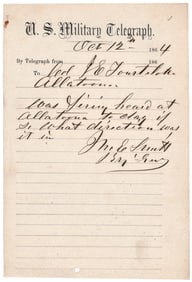 U. S. Military Telegraph.
Oct 12th 1864
By Telegraph from
To Col J E Tourtelotte
Allatoona.
Was firing heard at
Allatoona to day if
so What direction was
it in
Jno E Smith
Brig Gen